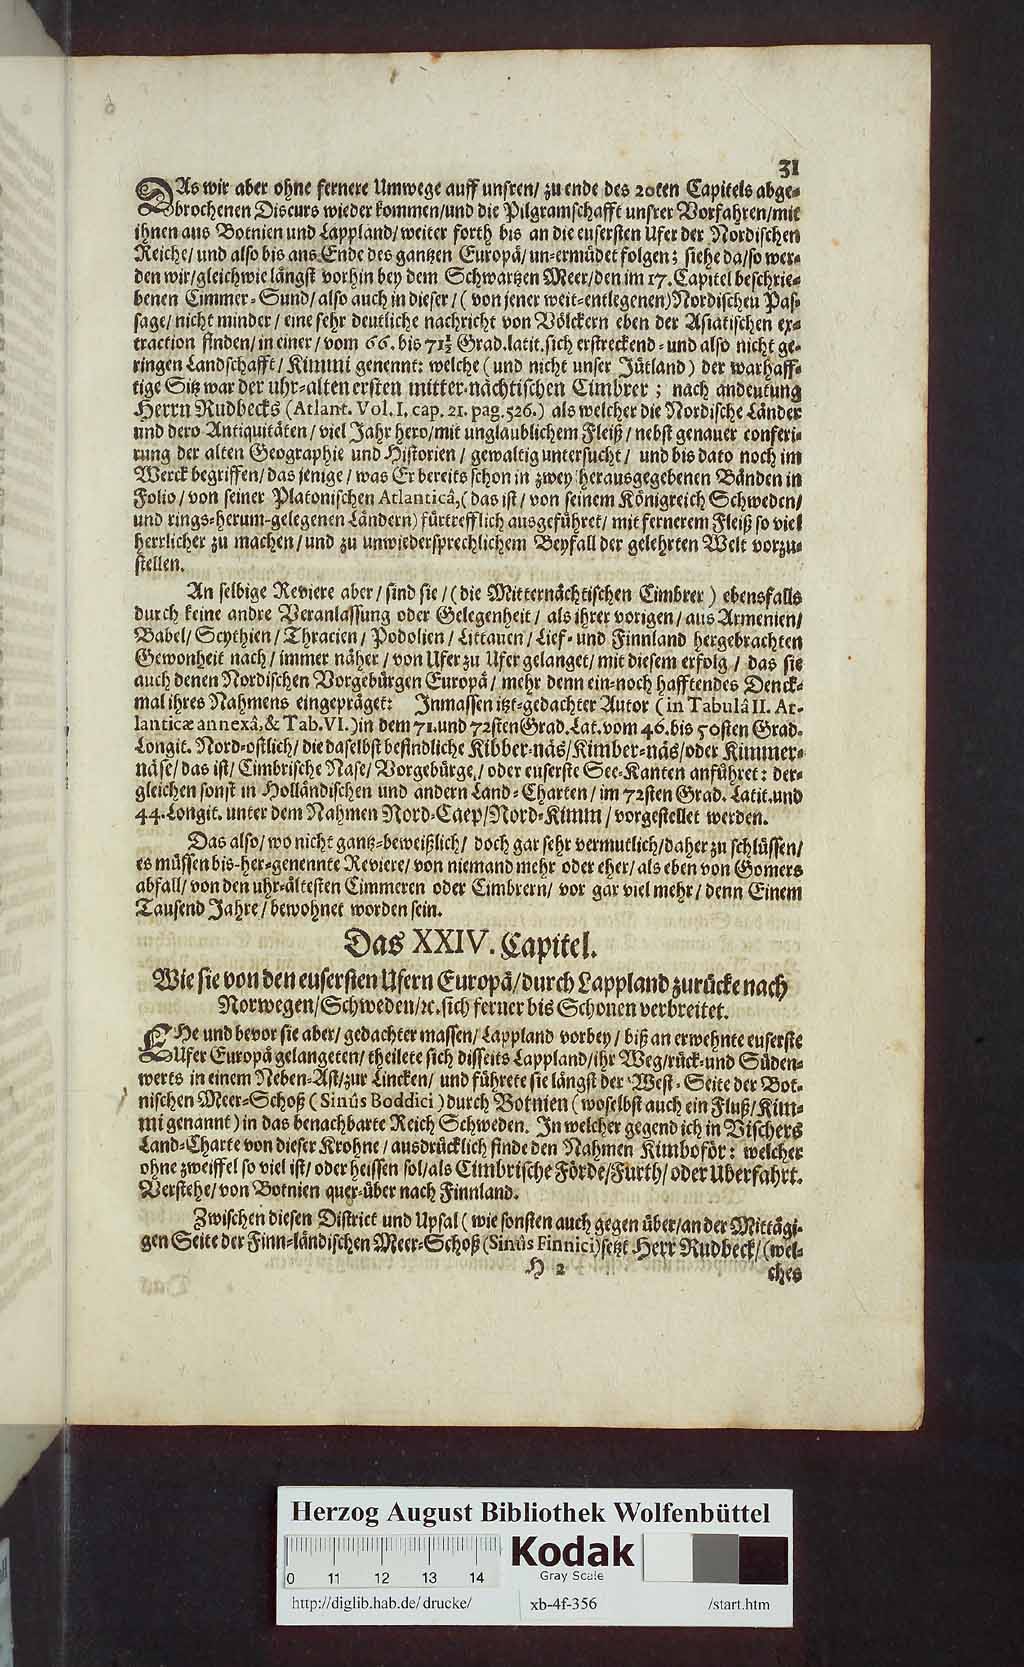 31
DAs wir aber ohne fernere Umwege auff unsren/ zu ende des 20ten Capitels abge-
brochenen Discurs wieder kommen/und die Pilgramschafft unsrer Vorfahren/mit
ihnen aus Botnien und Lappland/weiter forth bis an die eusersten Ufer der Nordischen
Reiche/und also bis ans Ende des gantzen Europâ/un-ermüdet folgen; siehe da/so wer-
den wir/gleichwie längst vorhin bey dem Schwartzen Meer/den im 17. Capitel beschrie-
benen Cimmer-Sund/also auch in dieser/( von jener weit-entlegenen) Nordischen Pas-
sage/nicht minder/ eine sehr deutliche nachricht von Völckern eben der Asiatischen ex-
traction finden/in einer/ vom 66. bis 71½ Grad. latit. sich erstreckend- und also nicht ge-
ringen Landschafft/ Kimmi genennt: welche (und nicht unser Jütland) der warhaff-
tige Sitz war der uhr-alten ersten mitter-nächtischen Cimbrer; nach andeutung
Herrn Rudbecks (Atlant. Vol. I, cap. 21. pag. 526.) als welcher die Nordische Länder
und dero Antiquitäten/viel Jahr hero/mit unglaublichem Fleiß/ nebst genauer conferi-
rung der alten Geographie und Historien/ gewaltig untersucht/ und bis dato noch im
Werck begriffen/das jenige/was Er bereits schon in zwey herausgegebenen Bänden in
Folio/von seiner Platonischen Atlanticâ,(das ist/von seinem Königreich Schweden/
und rings-herum-gelegenen Ländern) fürtrefflich ausgeführet/mit fernerem Fleiß so viel
herrlicher zu machen/und zu unwiedersprechlichem Beyfall der gelehrten Welt vorzu-
stellen.
An selbige Reviere aber/sind sie/(die Mitternächtischen Cimbrer) ebensfalls
durch keine andre Veranlassung oder Gelegenheit/ als ihrer vorigen/aus Armenien/
Babel/Scythien/Thracien/Podolien/Littauen/Lief- und Finnland hergebrachten
Gewonheit nach/immer näher/von Ufer zu Ufer gelanget/mit diesem erfolg/ das sie
auch denen Nordischen Vorgebürgen Europâ/ mehr denn ein-noch hafftendes Denck-
mal ihres Nahmens eingepräget: Inmassen itzt-gedachter Autor (in Tabulâ II. At-
lanticæ annexâ, & Tab. VI.) in dem 71. und 72sten Grad. Lat. vom 46. bis 50sten Grad.
Longit. Nord-ostlich/die daselbst befindliche Kibber-näs/Kimber-näs/oder Kimmer-
näse/das ist/Cimbrische Nase/Vorgebürge,/oder euserste See-Kanten anführet: der-
gleichen sonst in Holländischen und andern Land-Charten/im 72sten Grad. Latit. und
44. Longit. unter dem Nahmen Nord-Caep/Nord-Kimm/vorgestellet werden.
Das also/wo nicht gantz-beweißlich/ doch gar sehr vermutlich/daher zu schlüssen/
es müssen bis-her-genennte Reviere/von niemand mehr oder eher/als eben von Gomers
abfall/von den uhr-ältesten Cimmeren oder Cimbrern/ vor gar viel mehr/denn Einem
Tausend Jahre/bewohnet worden sein.
Das XXIV. Capitel.
Wie sie von den eusersten Ufern Europâ/durch Lappland zurücke nach
Norwegen/Schweden/ꝛc. sich ferner bis Schonen verbreitet.
EHe und bevor sie aber/gedachter massen/Lappland vorbey/ biß an erwehnte euserste
Ufer Europâ gelangeten/theilete sich disseits Lappland/ihr Weg/rück- und Süden-
werts in einem Neben-Ast/zur Lincken/ und führete sie längst der West-Seite der Bot-
nischen Meer-Schoß (Sinûs Boddici) durch Botnien (woselbst auch ein Fluß/Kim-
mi genannt) in das benachbarte Reich Schweden. In welcher gegend ich in Vischers
Land-Charte von dieser Krohne/ausdrücklich finde den Nahmen Kimboför: welcher
ohne zweiffel so viel ist/oder heissen sol/als Cimbrische Förde/Furth/oder Uberfahrt.
Verstehe/von Botnien quer-über nach Finnland.
Zwischen diesen District und Upsal (wie sonsten auch gegen über/an der Mittägi-
gen Seite der Finn-ländischen Meer-Schoß (Sinûs Finnici) setzt Herr Rudbeck/(wel-
H 2
ches
Herzog August Bibliothek Wolfenbüttel
0 11 12 13 14
Kodak
Gray Scale
http://diglib.hab.de/drucke/
xb-4f-356
/start.htm